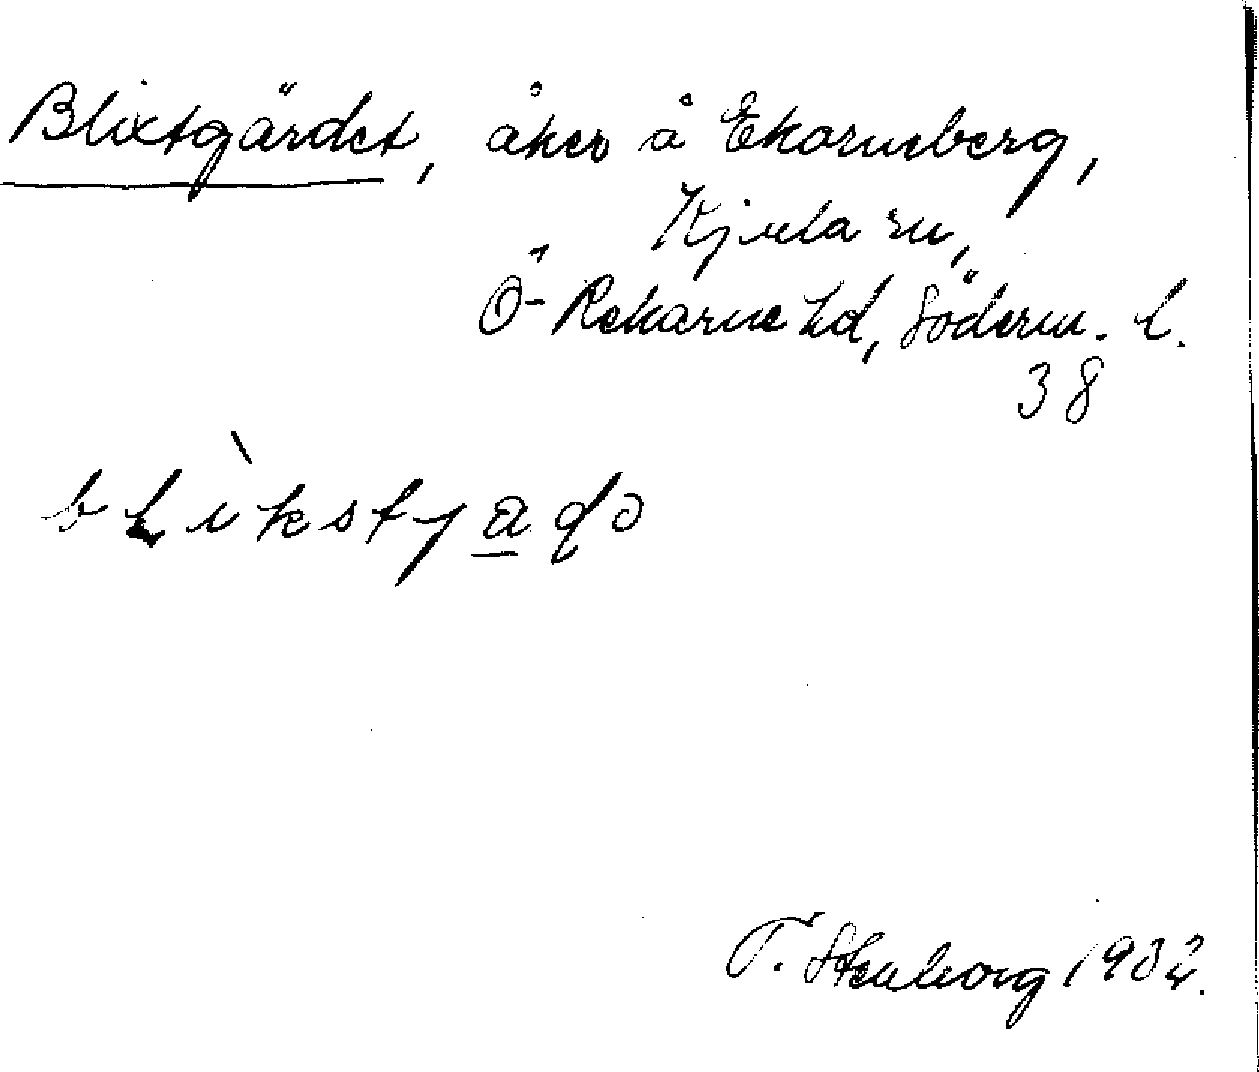 Blixtgärdet, åker å Ekornberg,
Kjula sn,
Ö- Rekarne hd, Söderm. l.
38
T. Stenborg 1932.